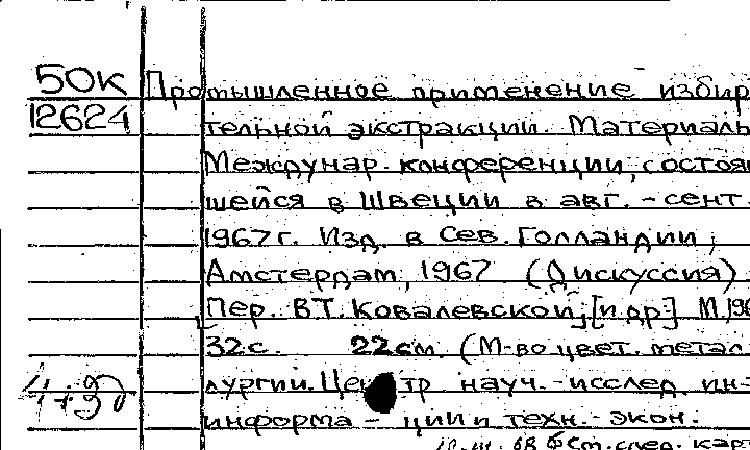 50К Промышленное применение избир
12624 тельной экстракции. Материалы
Междунар. конференции, состояв
шейся в Швеции в авг. - сент.
1967 г. Изд. в Сев. Голландии;
Амстердам, 1967 (Дискуссия)
Пер. В.Т. Ковалевской, [и др.] М, 196
32 с. 22 см. (М-во цвет. метал
лургии. Центр науч.-исслед. ин-
информа - ции и техн.-экон.
см. след. карт